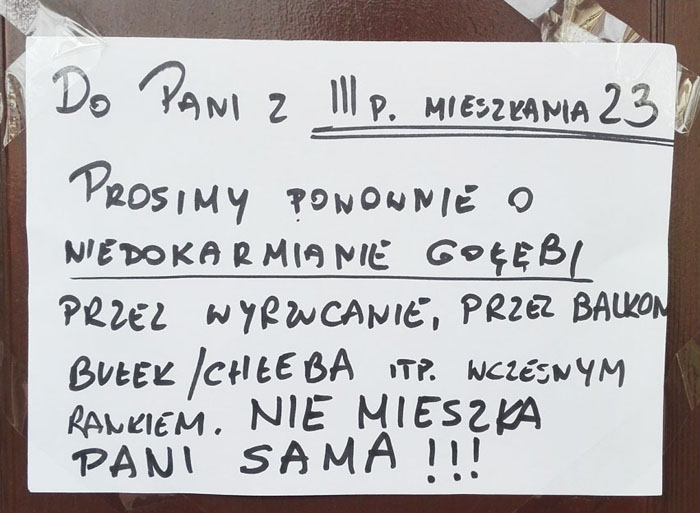 DO PANI Z III P. MIESZKANIA 23
PROSIMY PONOWNIE O
NIEDOKARMIANIE GOŁĘBI
PRZEZ WYRZUCANIE, PRZEZ BALKON
BUŁEK/CHŁEBA ITP. WCZESNYM
RANKIEM. NIE MIESZKA
PANI SAMA !!!